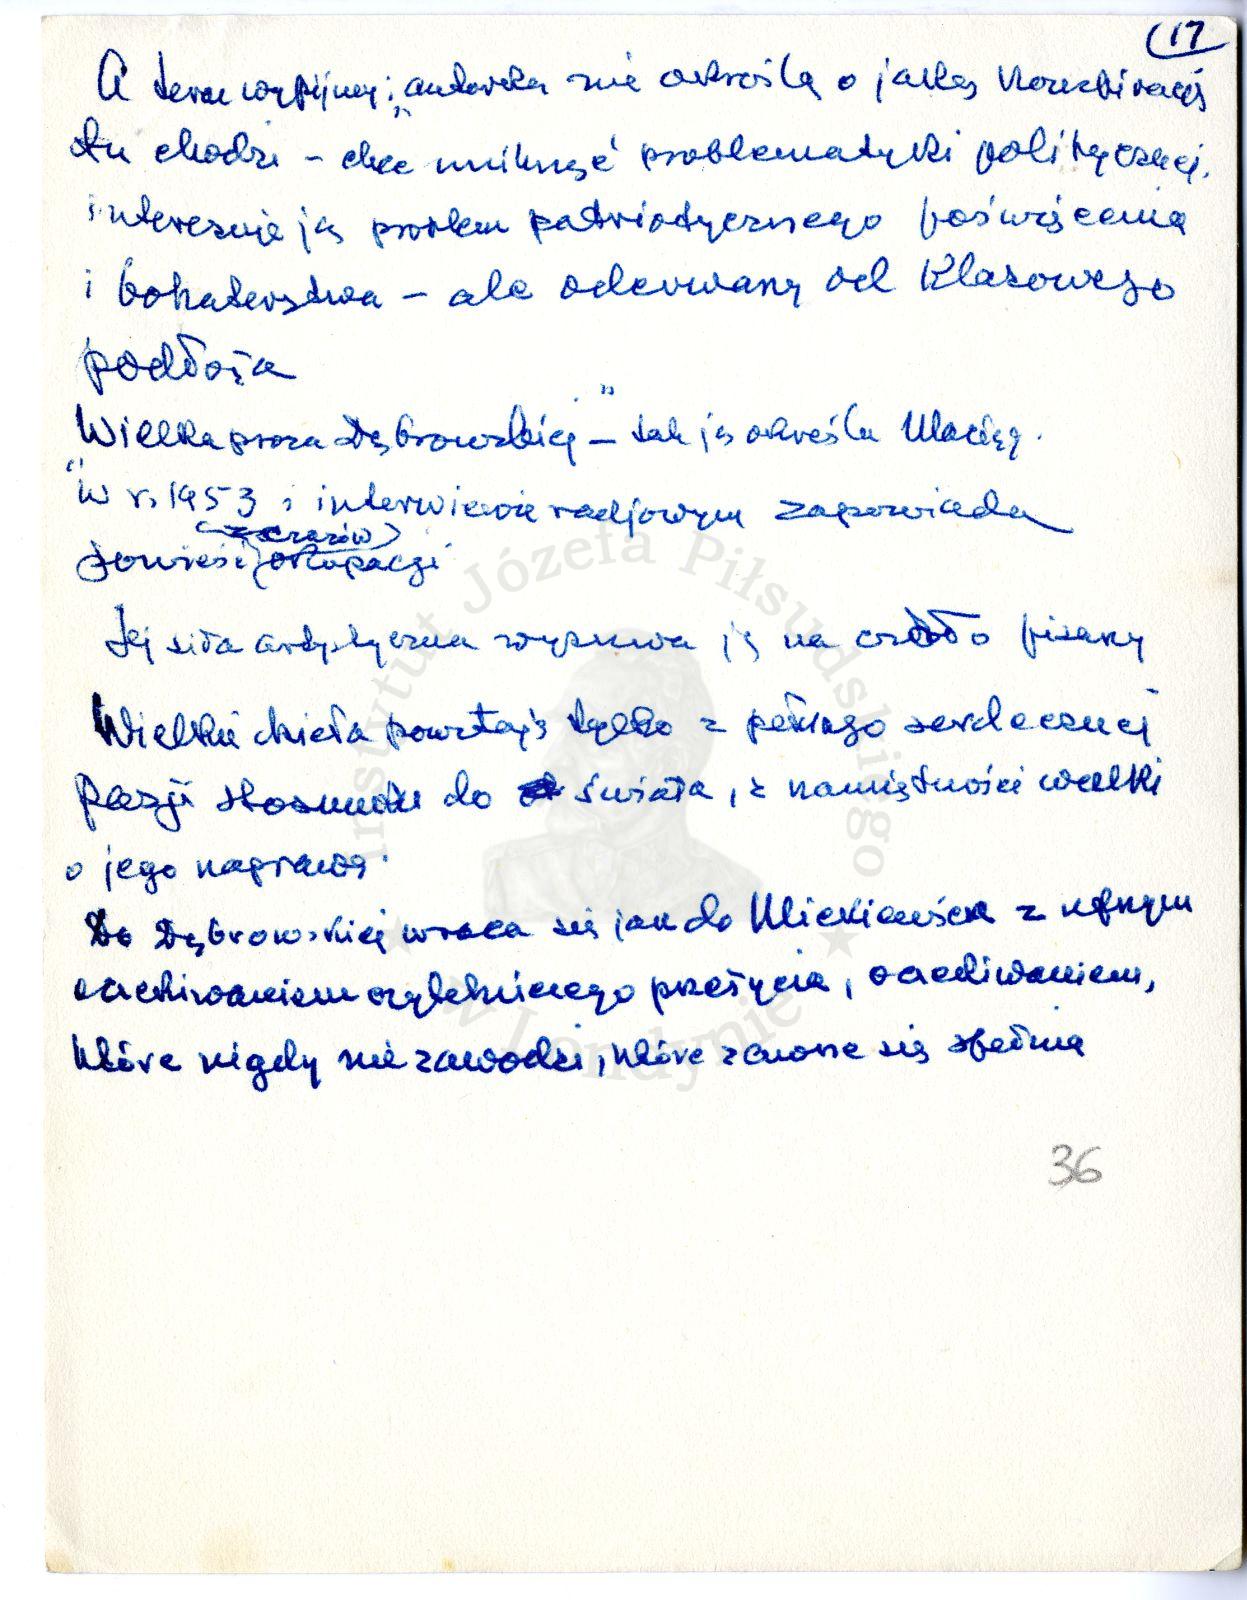 17
A teraz wypijmy; "autorka nie określa o jaką konspirację
tu chodzi – chce uniknąć problematyki politycznej.
interesuje ją problem patriotycznego poświęcenia
i bohaterstwa – ale oderwany od klasowego
podłoża
Wielka proza Dąbrowskiej" – tak ją określa Maciąg.
"W r. 1953 i interwiewie radjowym zapowiada
powieść z czasów okupacji
Jej siła artystyczna wysuwa ją na czoło pisarzy
Wielkie dzieła powstają tylko z pełnego serdecznej
pasji stosunku do świata, z namiętności walki
o jego naprawę.
Do Dąbrowskiej wraca się jak do Mickiewicza z ufnym
oczekiwaniem czytelniczego przeżycia, oczekiwaniem,
które nigdy nie zawodzi, które zawsze się spełnia
36
Instytut Józefa Piłsudskiego
w Londynie